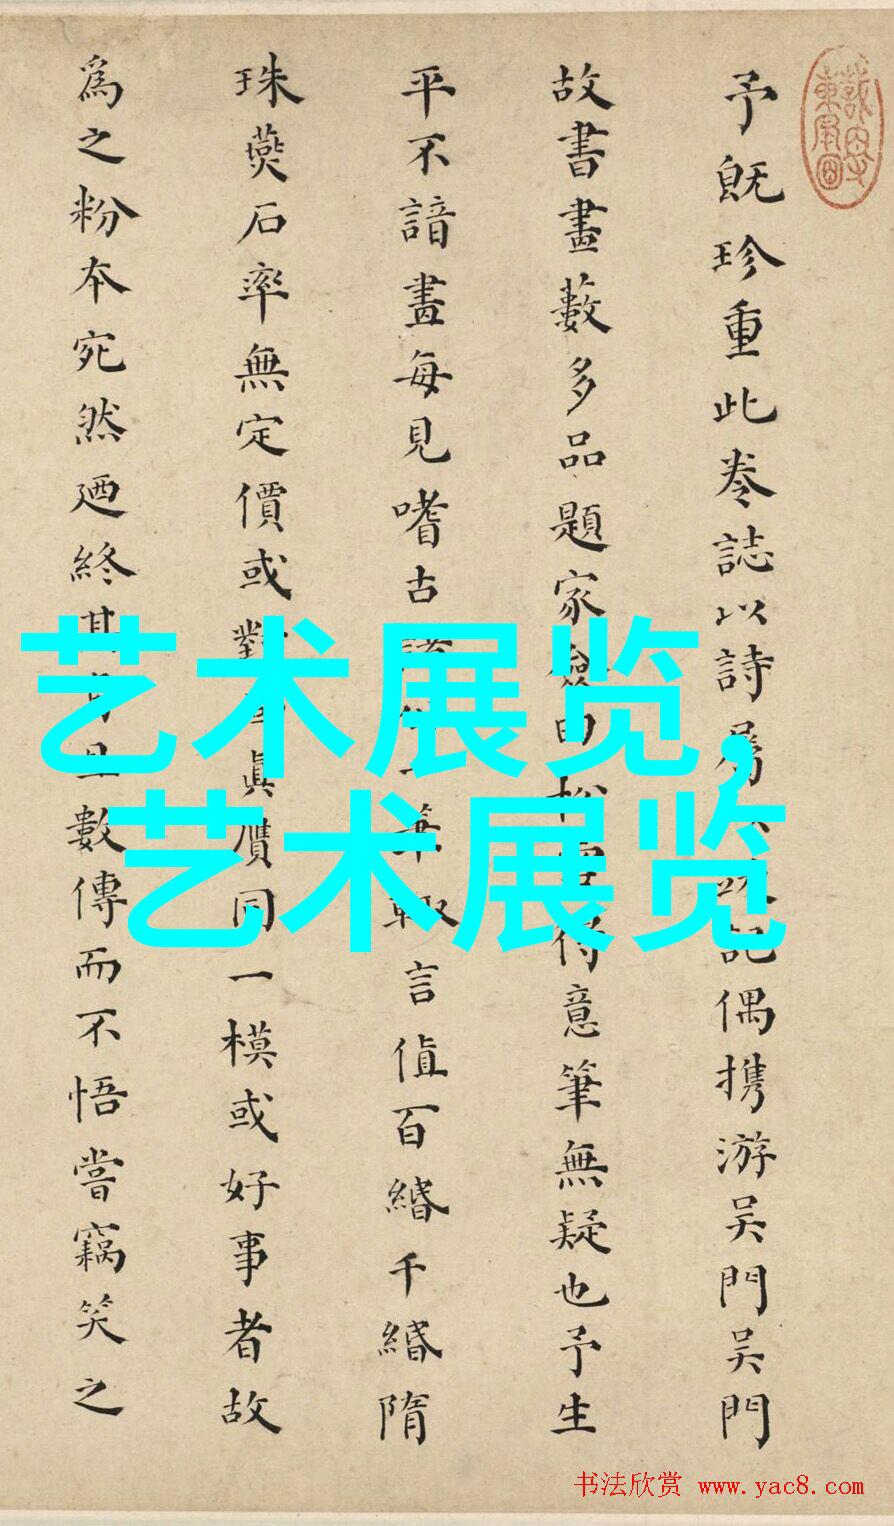 予既珍重此卷誌以詩屬跋記偶携游吳門吳門
故書畫藪多品題家僉曰松雪得意筆無疑也予生
平不諳畫每見嗜古筆輒言值百緡千緡隋
珠燕石率無定價或對真贗同一模或好事者故
為之粉本宛然迺終其身且數傳而不悟嘗竊笑之
艺术展览,
艺术展览
书法欣赏 www.yac8.com